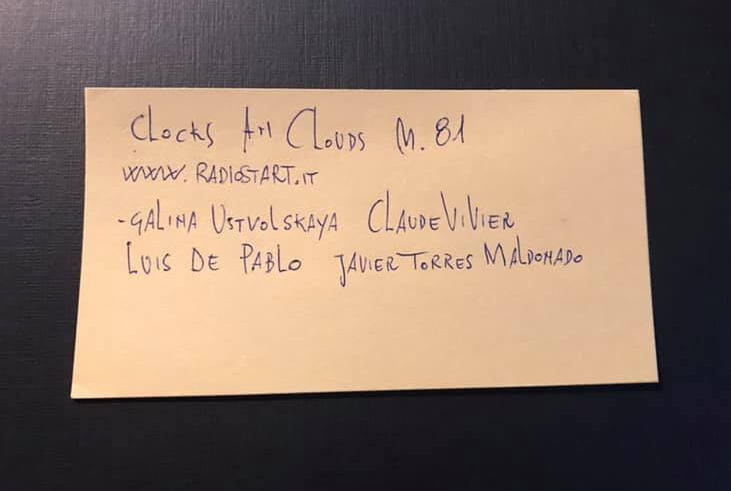 Clocks And Clouds N. 81
www.RADIOSTART.IT
-GALINA USTVOLSKAYA CLAUDE VIVIER
LUIS DE PABLO JAVIER TORRES MALDONADO